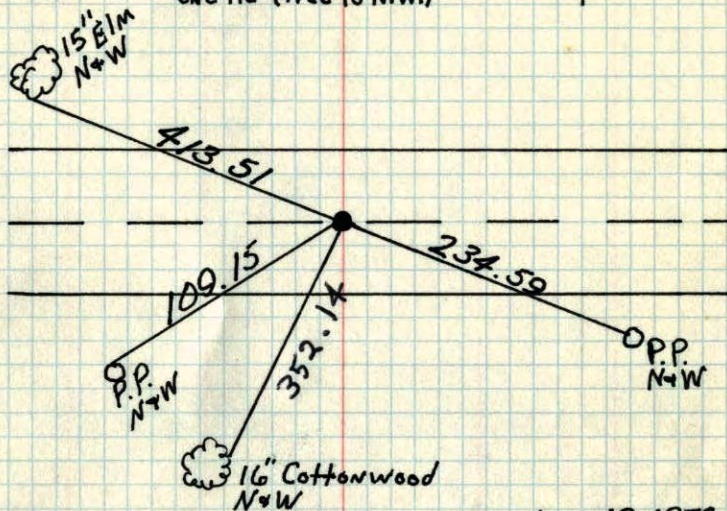 15" Elm
N+W
413.51
109.15
234.59
352.14
P.P.
N+W
P.P.
N+W
16" Cottonwood
N+W